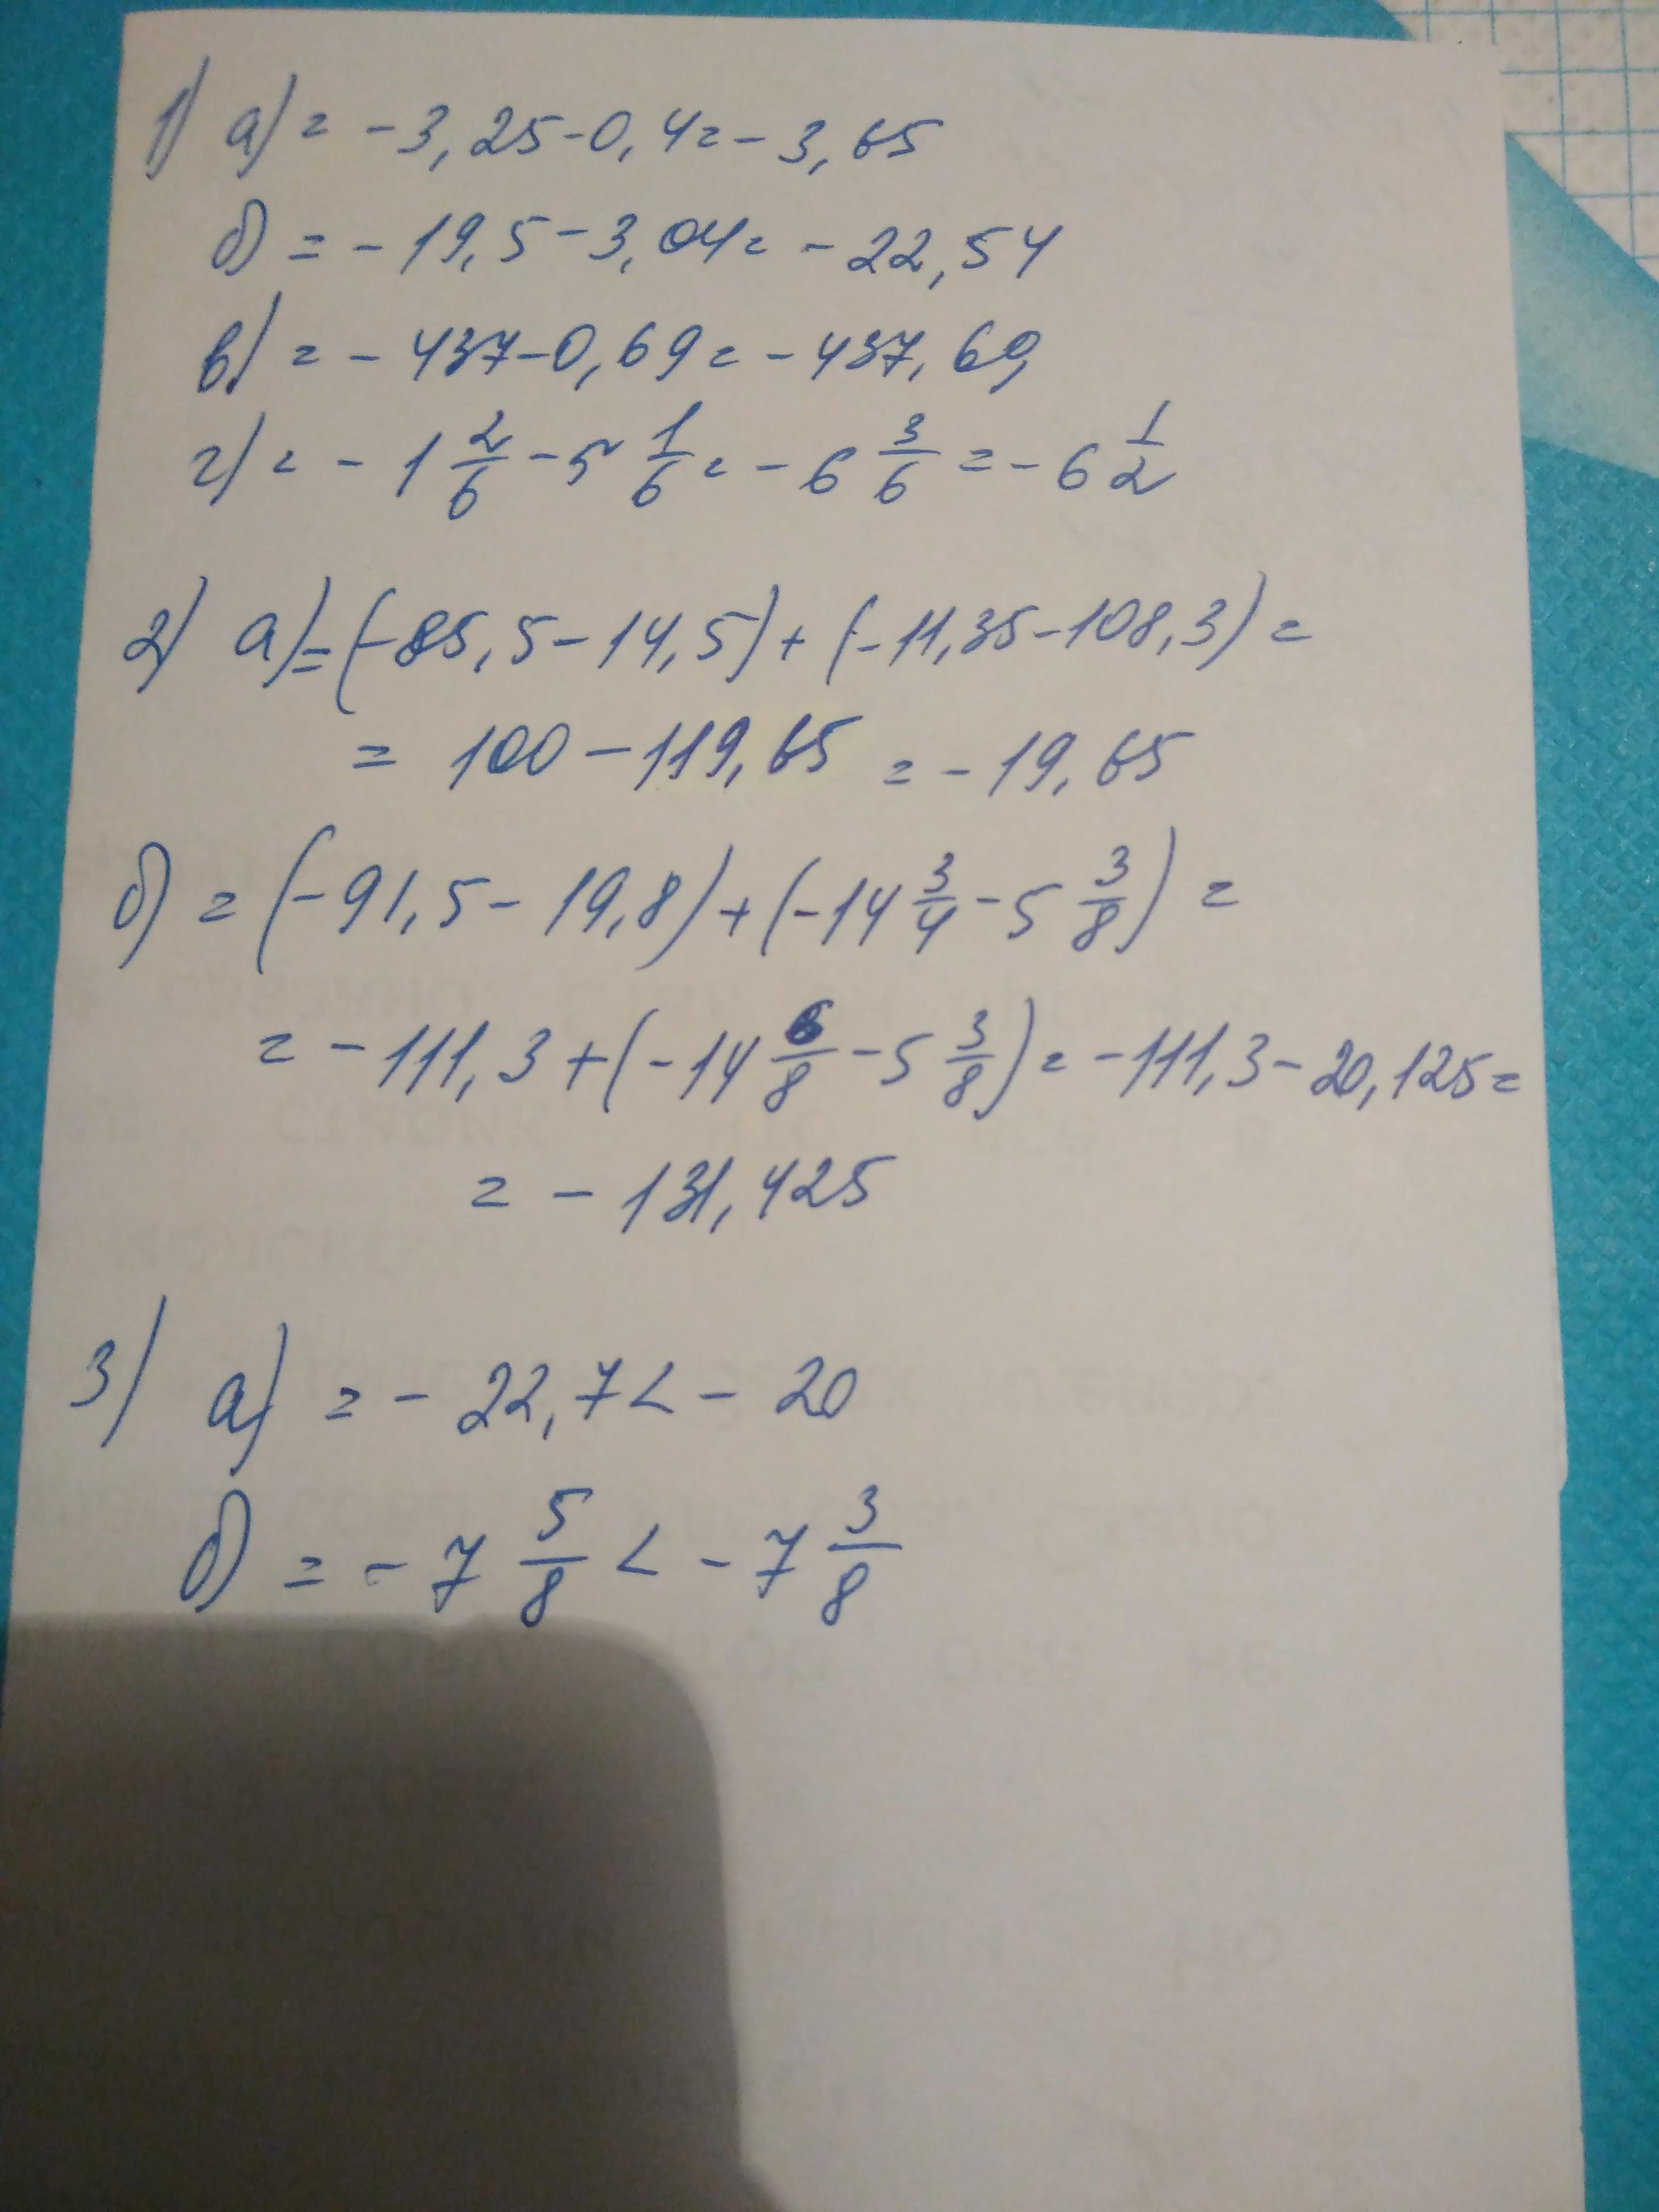 1) а) = - 3,25 - 0,4 = - 3,65
б) = - 19,5 - 3,04 = - 22,54
в) = - 437 - 0,69 = - 437,69
г) = - 1 2/6 - 5 1/6 = - 6 3/6 = - 6 1/2
2) а) = (- 85,5 - 14,5) + (- 11,35 - 108,3) =
= 100 - 119,65 = - 19,65
б) = (- 91,5 - 19,8) + (- 14 3/4 - 5 3/8) =
= - 111,3 + (- 14 6/8 - 5 3/8) = - 111,3 - 20,125 =
= - 131,425
3) а) = - 22,7 < - 20
б) = - 7 5/8 < - 7 3/8